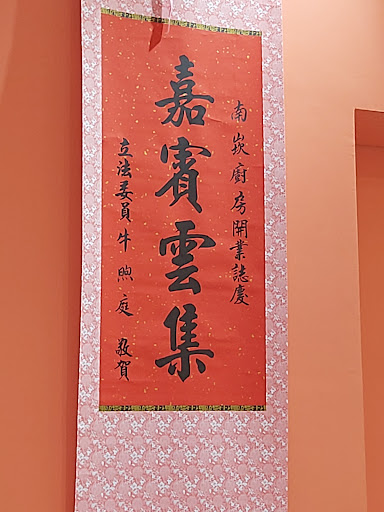 南崁廚房開業誌慶
嘉賓雲集
立法委員牛煦庭 敬賀